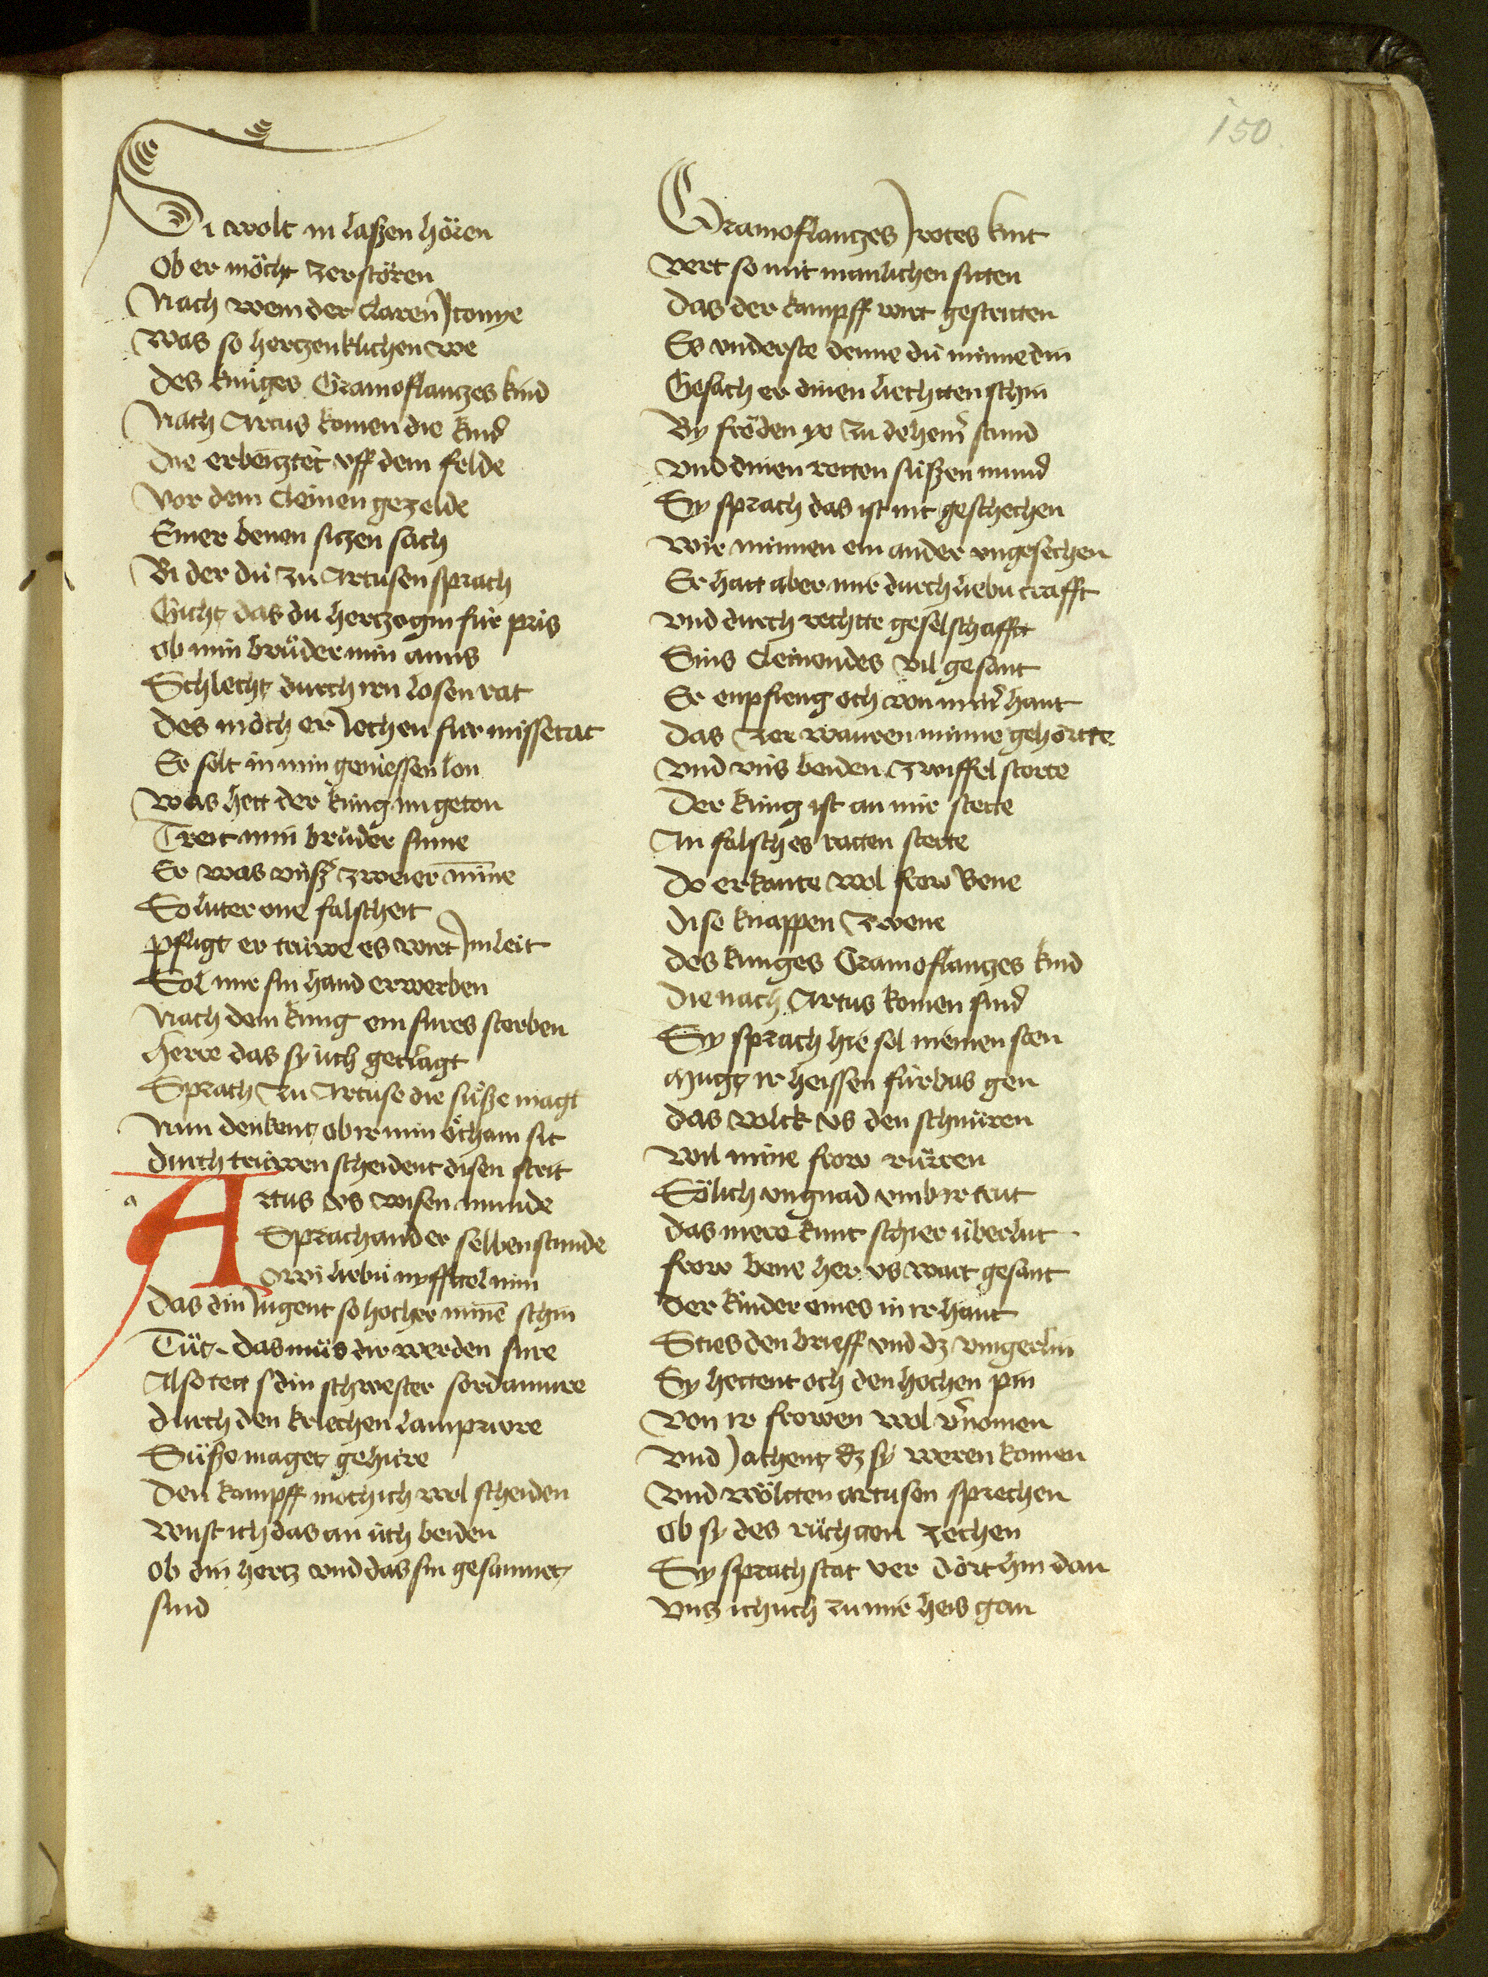 150
Si wolt in laßen hören
Ob er möcht zerstören
Nach wem der claren Jtonye
Was so hertzenklichen we
des küniges Gramoflantzes kind
Nach Artus komen die kind
die erbeitztet vff dem felde
Vor dem cleinen gezelde
Einer benen sitzen sach
Bi der dü zü Artusen sprach
Gicht das du hertzogin für pris
ob min brüder min amis
Schlecht durch iren losen rat
des möch er Jechen fur missetat
Er solt in min geniessen lon
Was hett der küng im geton
Treit min brüder sinne
Er was vnßer zweier minne
So luter one falscheit
pfligt er trüwe es wirt Jm leit
Sol mir sin hand erwerben
Nach dem küng ein sures sterben
herre das sy üch geclagt
Sprach zu Artuse die süße magt
Nun denkent ob ir min öcham sit
durch trüwen scheident disen strit
Artus vs wisen munde
Sprach an der selben stunde
owi liebü nyfftel min
das din Jugent so hocher minne schin
Tüt das müs dir werden sure
Also tett s din schwester sordamure
durch den kriechen lampriore
Süße maget gehüre
den kampff möch ich wol scheiden
Wust ich das an üch beiden
ob din hertz vnd das sin gesamnet
sind
Gramoflantzes Jrotes kint
vert so mit manlichen sitten
das der kampff wirt gestritten
Es vnderste denne dü minne din
Gesach er dinen liechtten schin
By fröden ye zu deheiner stund
vnd dinen rotten süßen mund
Sy sprach das ist nit geschechen
Wir minnen ein ander vngesechen
Er hatt aber mir durch liebü crafft
vnd durch rechtte geselschafft
Sins cleinendes vil gesant
Er enpfieng och von miner hant
das zer waren minne gehörtte
vnd vns beiden zwiffel storte
der küng ist an mir stette
An falsches ratten stette
do erkante wol frow bene
dise knappen zwene
des kunges Gramoflantzes kind
die nach Artus komen sind
Sy sprach hie sol niemen sten
Mugt ir heissen fürbas gen
das volck vs den schnüren
wil mine frow rürren
Sölich vngnad vmb ir trut
das mere kunt schier überlut
frow bene her vs wart gesant
der kinder eines in ir hant
Sties den brieff vnd dz vingerlin
Sy hettent och den hochen pin
von ir frowen wol vernomen
vnd Jachent dz sy weren komen
vnd wöltten artusen sprechen
ob sy des rüchtten zechen
Sy sprach stat ver dört hin dan
vnz ich üch zu mir heis gan